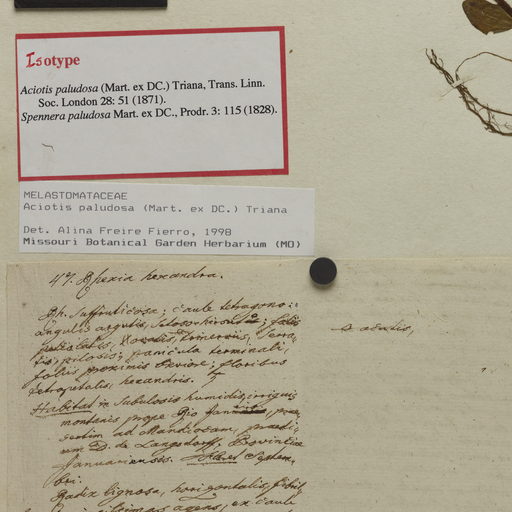 Isotype
Aciotis paludosa (Mart. ex DC.) Triana, Trans. Linn.
Soc. London 28: 51 (1871).
Spennera paludosa Mart. ex DC., Prodr. 3: 115 (1828).
MELASTOMATACEAE
Aciotis paludosa (Mart. ex DC.) Triana
Det. Alina Freire Fierro, 1998
Missouri Botanical Garden Herbarium (MO)
47. Rhexia hexandra.
Rh. Suffruticosa; caule tetragono:
angulis argutis, setoso-hirsutis; foliis
petiolatis, trinerviis, serra-
tis, pilosis; panicula terminali,
foliis proximis breviore; floribus
tetropetalis, hexandris.
Habitat in subulosis humidis, irriguis
montanis prope Rio
sertim ad Mandiocam, praedi-
um D. de Langsdorff, Provintiae
Januariensis. Septem-
bri.
Radix lignosa, horizontalis,
agens, ex caule
ovatis,